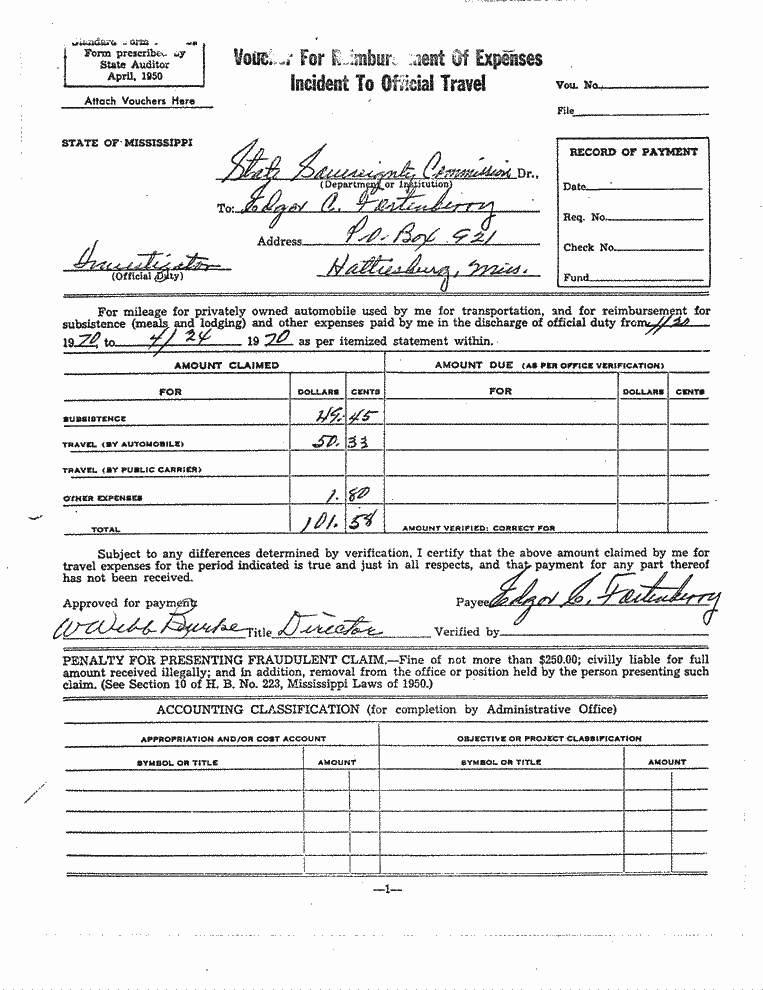 Form prescribed by
State Auditor
April, 1950
Attach Vouchers Here
Voucher For Reimbursement Of Expenses
Incident To Official Travel
Vou. No.
File
STATE OF MISSISSIPPI
State Sovereignty Commission Dr.,
(Department or Institution)
To: Edgar C. Fortenberry
Address P.O. Box 921
Investigator
(Official Duty)
Hattiesburg, Miss.
RECORD OF PAYMENT
Date
Req. No.
Check No.
Fund
For mileage for privately owned automobile used by me for transportation, and for reimbursement for
subsistence (meals and lodging) and other expenses paid by me in the discharge of official duty from
1970, to 4/24 1970 as per itemized statement within.
AMOUNT CLAIMED AMOUNT DUE (AS PER OFFICE VERIFICATION)
FOR DOLLARS CENTS FOR DOLLARS CENTS
SUBSISTENCE 49.45
TRAVEL (BY AUTOMOBILE) 50.33
TRAVEL (BY PUBLIC CARRIER)
OTHER EXPENSES 1.80
TOTAL 101.58 AMOUNT VERIFIED: CORRECT FOR
Subject to any differences determined by verification, I certify that the above amount claimed by me for
travel expenses for the period indicated is true and just in all respects, and that payment for any part thereof
has not been received.
Approved for payment Payee Edgar C. Fortenberry
W Webb Burke Title Director Verified by
PENALTY FOR PRESENTING FRAUDULENT CLAIM.—Fine of not more than $250.00; civilly liable for full
amount received illegally; and in addition, removal from the office or position held by the person presenting such
claim. (See Section 10 of H. B. No. 223, Mississippi Laws of 1950.)
ACCOUNTING CLASSIFICATION (for completion by Administrative Office)
APPROPRIATION AND/OR COST ACCOUNT OBJECTIVE OR PROJECT CLASSIFICATION
SYMBOL OR TITLE AMOUNT SYMBOL OR TITLE AMOUNT
—1—